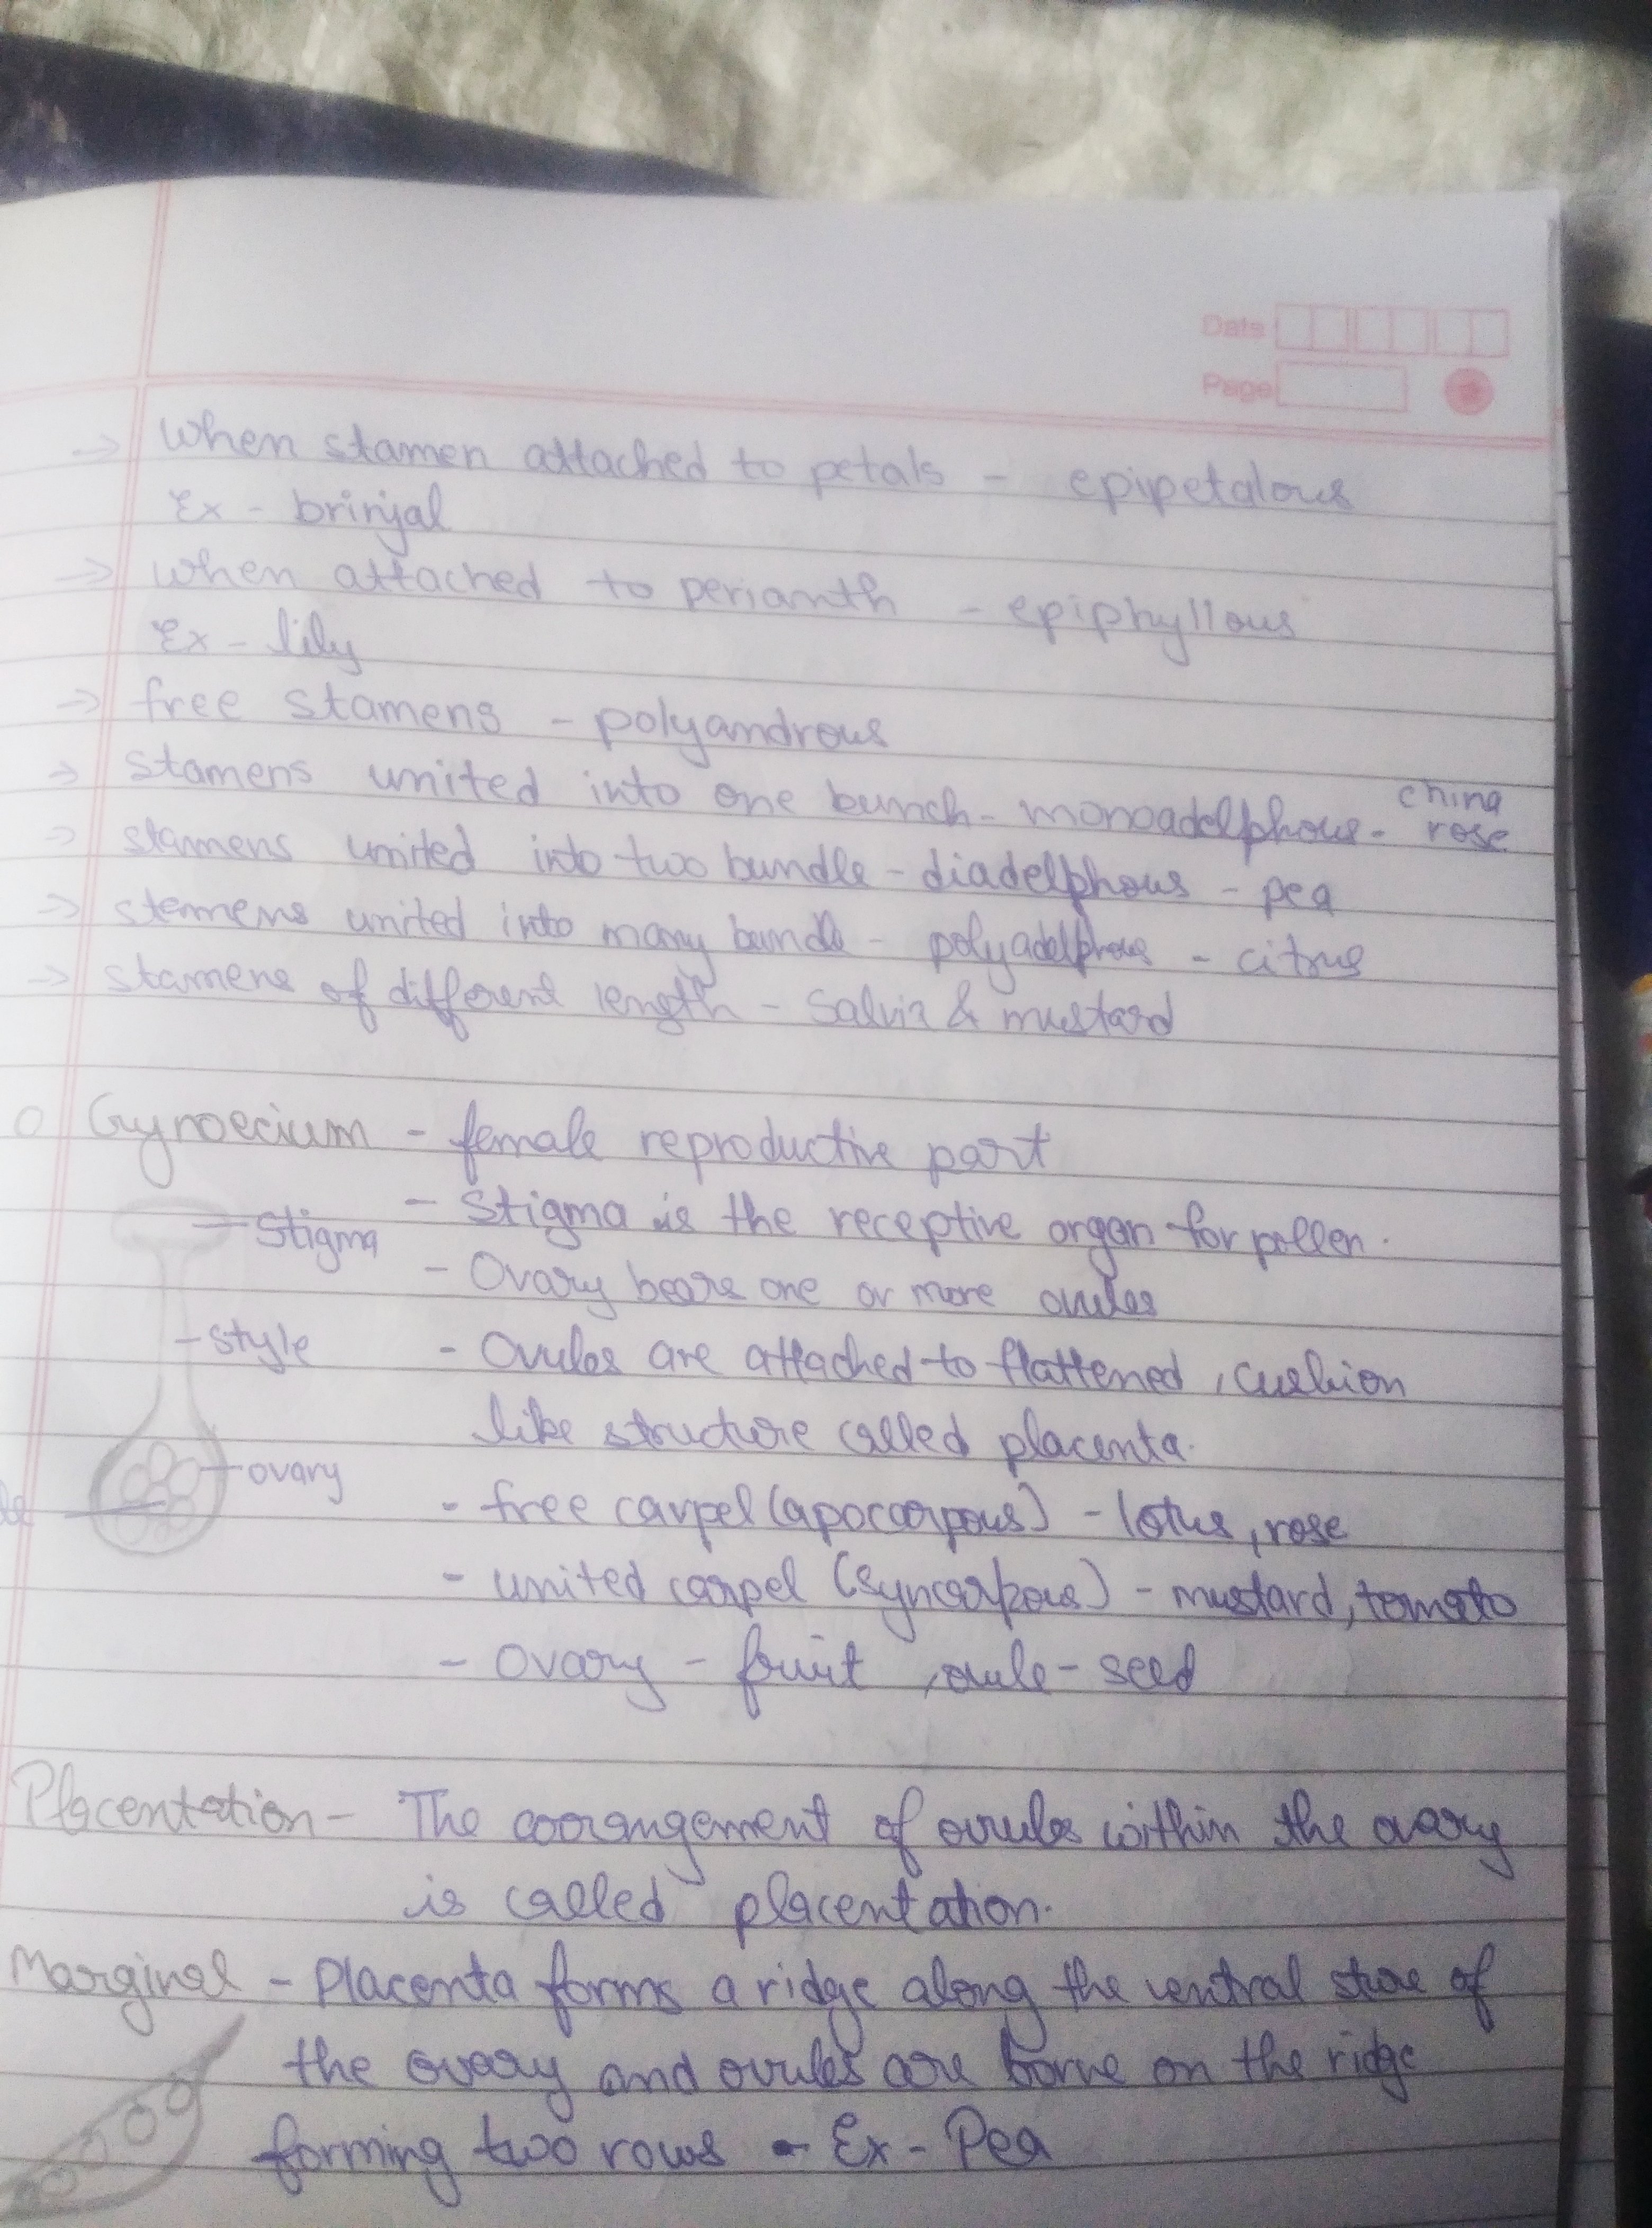 Date
Page
→ When stamen attached to petals - epipetalous
Ex - brinjal
→ when attached to perianth - epiphyllous
Ex - lily
→ free stamens - polyandrous
→ stamens united into one bunch - monoadelphous - china rose
→ stamens united into two bundle - diadelphous - pea
→ stemens united into many bundle - polyadelphous - citrus
→ stamens of different length - Salvia & mustard
○ Gynoecium - female reproductive part
Stigma - Stigma is the receptive organ for pollen.
- Ovary bears one or more ovules
- style - Ovules are attached to flattened, cushion
like structure called placenta.
ovary - free carpel (apocarpous) - lotus, rose
- united carpel (syncarpous) - mustard, tomato
- Ovary - fruit, ovule - seed
Placentation - The arrangement of ovules within the ovary
is called placentation.
Marginal - Placenta forms a ridge along the ventral of
the ovary and ovules are borne on the ridge
forming two rows - Ex - Pea